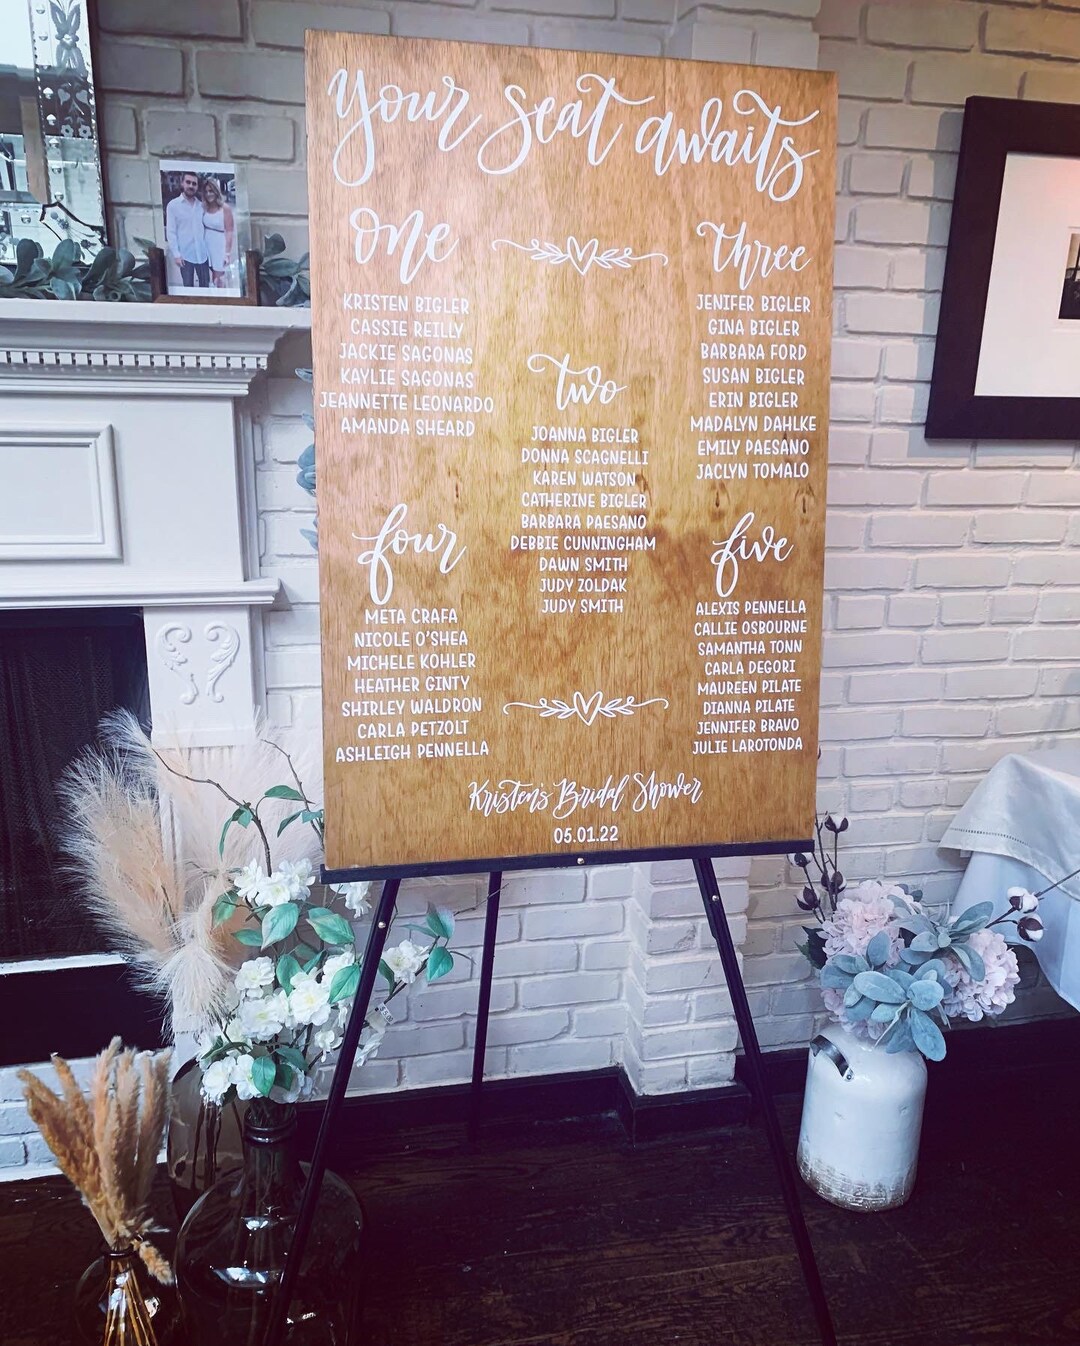 Your seat awaits
one
KRISTEN BIGLER
CASSIE REILLY
JACKIE SAGONAS
KAYLIE SAGONAS
JEANNETTE LEONARDO
AMANDA SHEARD
two
JOANNA BIGLER
DONNA SCAGNELLI
KAREN WATSON
CATHERINE BIGLER
BARBARA PAESANO
DEBBIE CUNNINGHAM
DAWN SMITH
JUDY ZOLDAK
JUDY SMITH
three
JENIFER BIGLER
GINA BIGLER
BARBARA FORD
SUSAN BIGLER
ERIN BIGLER
MADALYN DAHLKE
EMILY PAESANO
JACLYN TOMALO
four
META CRAFA
NICOLE O'SHEA
MICHELE KOHLER
HEATHER GINTY
SHIRLEY WALDRON
CARLA PETZOLT
ASHLEIGH PENNELLA
five
ALEXIS PENNELLA
CALLIE OSBOURNE
SAMANTHA TONN
CARLA DEGORI
MAUREEN PILATE
DIANNA PILATE
JENNIFER BRAVO
JULIE LAROTONDA
Kristen's Bridal Shower
05.01.22